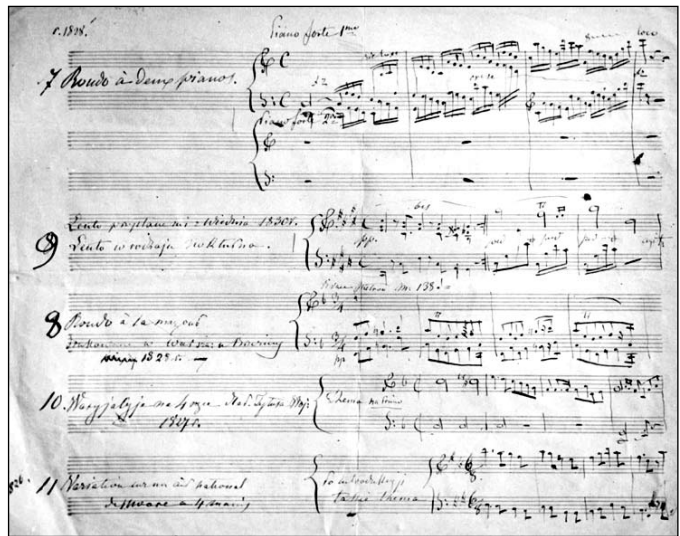 r. 1828.
Piano forte 1mo
loco
7 Rondo à deux pianos.
Piano forte 2do
Lento przysłane mi z Wiednia 1830 r.
9 Lento w rodzaju Nokturna.
pp.
138
8 Rondo à la mazur
drukowane w Warszawie u Brzeziny
1828 r.
pp
10 Waryjacyje na 4 ręce
Thema
1827 r.
1826.
11 Variation sur un air national
de Moore à 4 mains
Po introdukcyi
takie thema